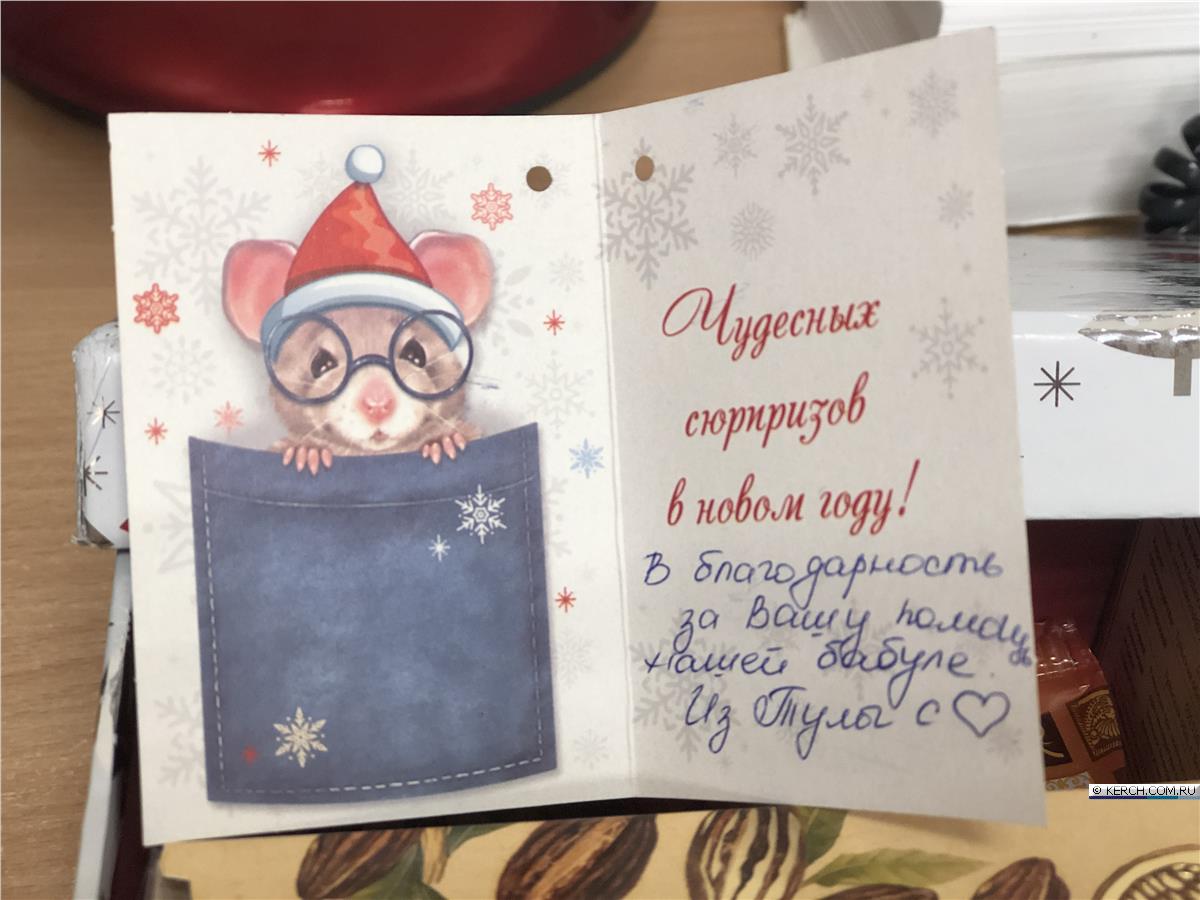 Чудесных
сюрпризов
в новом году!
В благодарность
за Вашу помощь
нашей бабуле.
Из Тулы с ♡
© KERCH.COM.RU